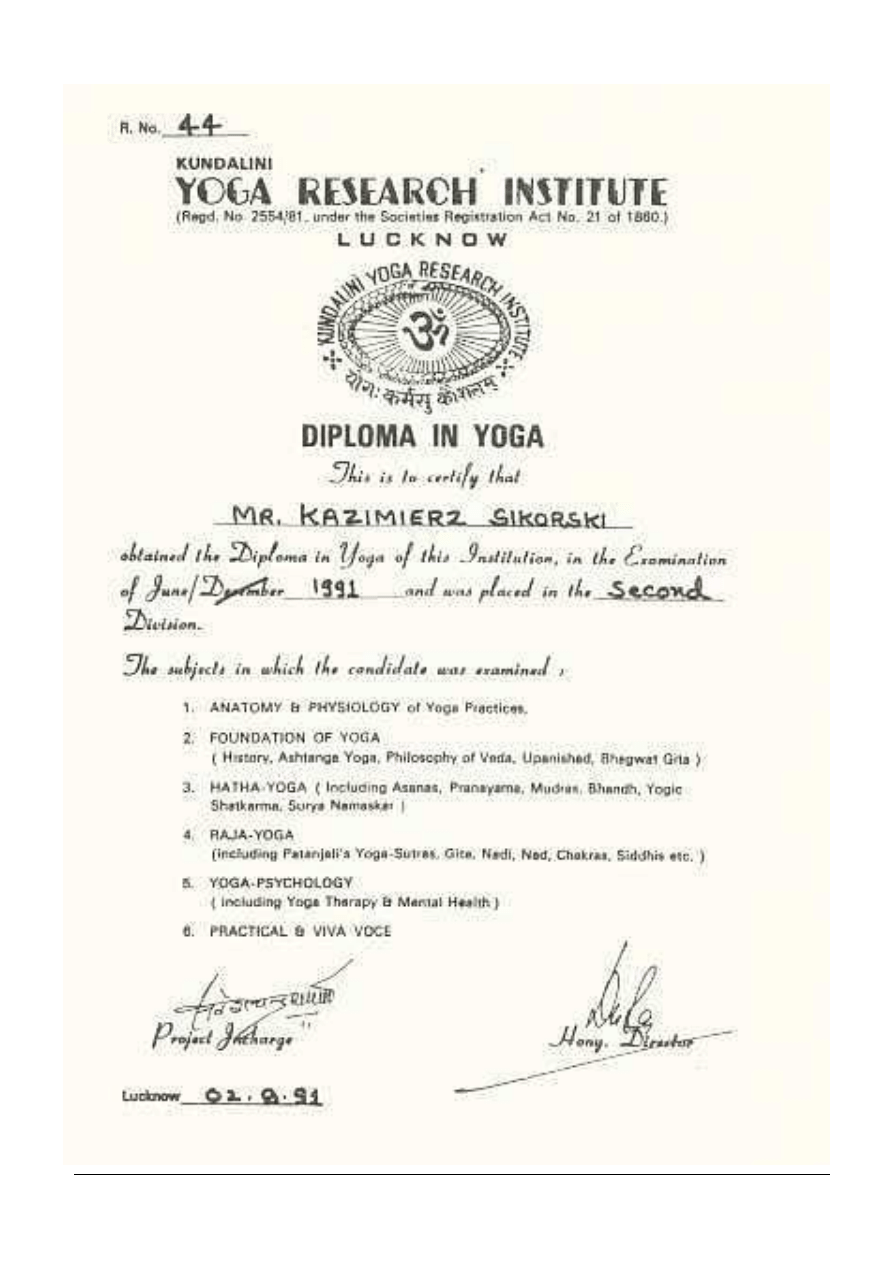 R. No. 44
KUNDALINI
YOGA RESEARCH INSTITUTE
(Regd. No. 2554/81, under the Societies Registration Act No. 21 of 1860.)
LUCKNOW
KUNDALINI YOGA RESEARCH INSTITUTE
ॐ
योगः कर्मसु कौशलम्
DIPLOMA IN YOGA
This is to certify that
MR. KAZIMIERZ SIKORSKI
obtained the Diploma in Yoga of this Institution, in the Examination
of June/December 1991 and was placed in the Second
Division.
The subjects in which the candidate was examined :
1. ANATOMY & PHYSIOLOGY of Yoga Practices.
2. FOUNDATION OF YOGA
( History, Ashtanga Yoga, Philosophy of Veda, Upanishad, Bhagwat Gita )
3. HATHA-YOGA ( Including Asanas, Pranayama, Mudras, Bhandh, Yogic
Shatkarma, Surya Namaskar )
4. RAJA-YOGA
(including Patanjali's Yoga-Sutras, Gita, Nadi, Nad, Chakras, Siddhis etc. )
5. YOGA-PSYCHOLOGY
( including Yoga Therapy & Mental Health )
6. PRACTICAL & VIVA VOCE
Project Incharge
Hony. Director
Lucknow 02.9.91